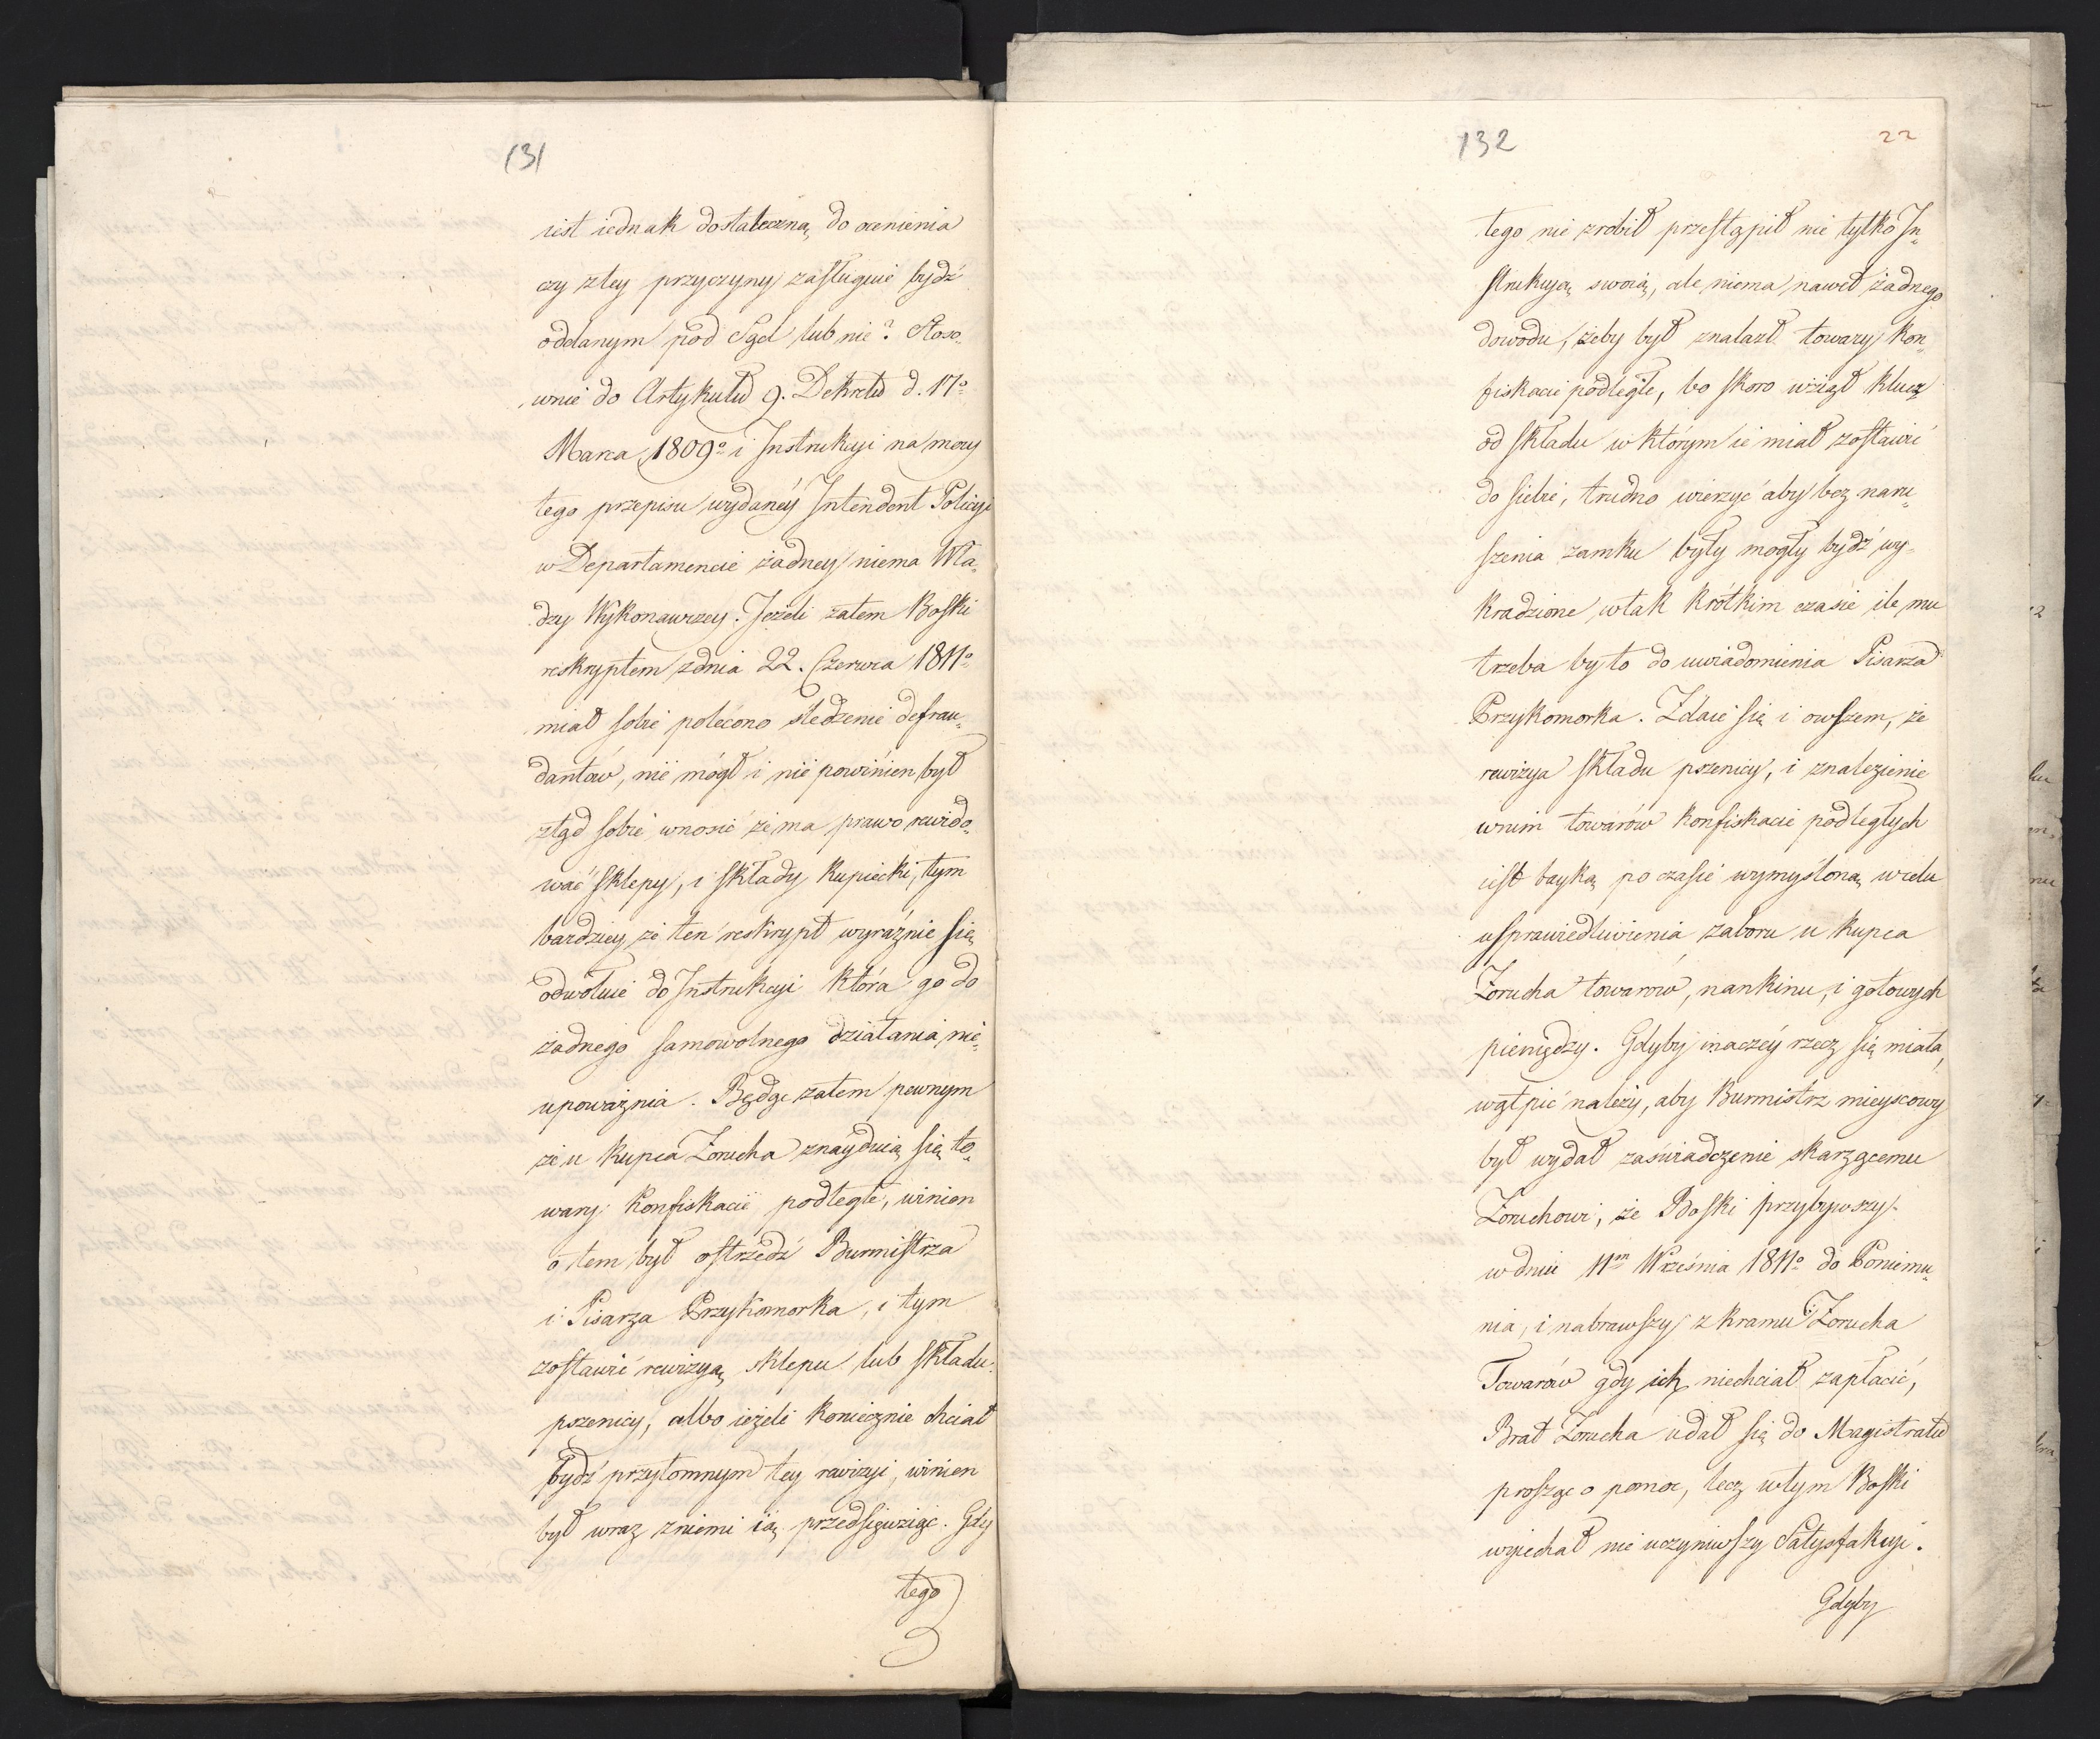 131
iest iednak dostateczną do ocenienia
czy z tey przyczyny zasługuie bydź
oddanym pod Sąd lub nie? Stoso„
wnie do Artykułu 9. Dekretu d. 17o
Marca 1809o i Instrukcyi na mocy
tego przepisu wydanéy Intendent Policyi
w Departamencie żadney niema Wła„
dzy Wykonawczey. Jeżeli zatem Boski
reskryptem z dnia 22. Czerwca 1811o
miał sobie polécono śledzenie defrau„
dantów, nie mógł i nie powinien był
ztąd sobie wnosić że ma prawo rewido„
wać sklepy, i składy kupiecki, tym
bardziey że ten reskrypt wyraźnie się
odwołuie do Instrukcyi która go do
żadnego samowolnego działania nie„
upoważnia. Będąc zatem pewnym
że u kupca Zorucha znayduią się to„
wary konfiskacie podległe, winien
o tem był ostrzedź Burmistrza
i Pisarza Przykomorka, i tym
zostawić rewizyą sklepu lub składu
pszenicy, albo ieżeli koniecznie chciał
bydź przytomnym tey rewizyi, winien
był wraz z niemi ią przedsięwziąć. Gdy
tego
132
22
tego nie zrobił przestąpił nie tylko In„
strukcyą swoią, ale niema nawet żadnego
dowodu, żeby był znalazł towary kon„
fiskacie podległe, bo skoro wziął klucz
od składu w którym ie miał zostawić
do siebie, trudno wierzyć aby bez naru„
szenia zamku były mogły bydź wy„
kradzione w tak krótkim czasie ile mu
trzeba było do uwiadomienia Pisarza
Przykomorka. Zdaie się i owszem, że
rewizya składu pszenicy, i znalezienie
w nim towarów konfiskacie podległych
iest bayką po czasie wymysloną w celu
usprawiedliwienia zaboru u kupca
Zorucha towarow, nankinu, i gotowych
pieniędzy. Gdyby inaczéy rzecz się miała,
wątpić należy, aby Burmistrz mieyscowy
był wydał zaświadczenie skarzącemu
Zoruchowi, że Boski przybywszy
w dniu 11m Września 1811o do Poniemu„
nia, i nabrawszy z kramu Zorucha
Towarów gdy ich niechciał zapłacić,
Brat Zorucha udał się do Magistratu
prosząc o pomoc, lecz w tym Boski
wyiechał nie uczyniwszy Satysfakcyi.
Gdyby